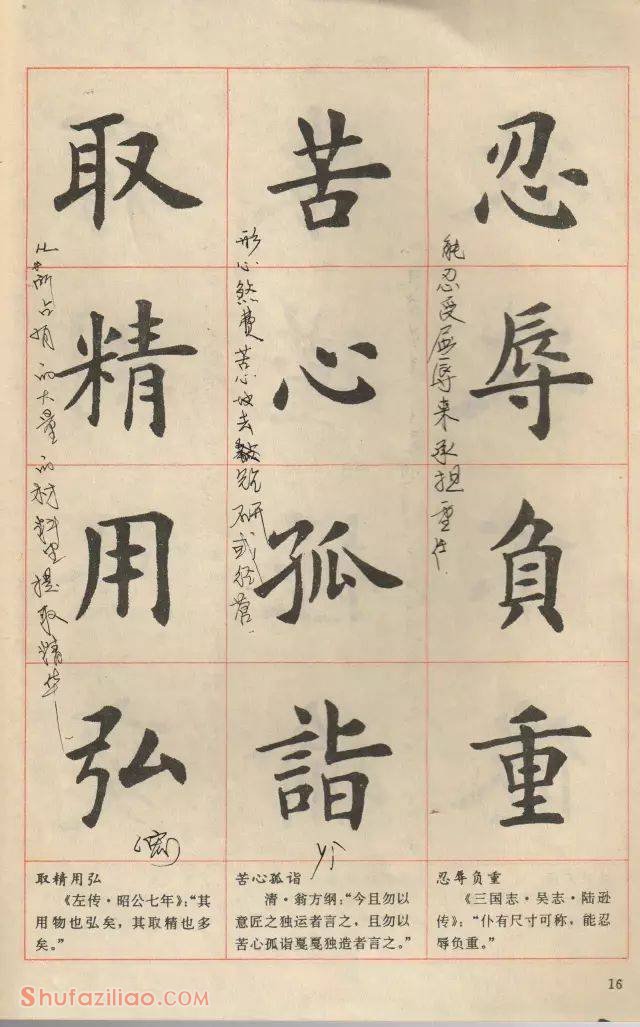 忍辱负重
苦心孤诣
取精用弘
能忍受屈辱来承担重任
形心煞费苦心地去钻研或经营.
从所占有的大量的材料里提取精华
(宏)
忍辱负重
《三国志·吴志·陆逊
传》：“仆有尺寸可称，能忍
辱负重。”
苦心孤诣
清·翁方纲：“今且勿以
意匠之独运者言之，且勿以
苦心孤诣戛戛独造者言之。”
取精用弘
《左传·昭公七年》：“其
用物也弘矣，其取精也多
矣。”
16
Shufaziliao.com